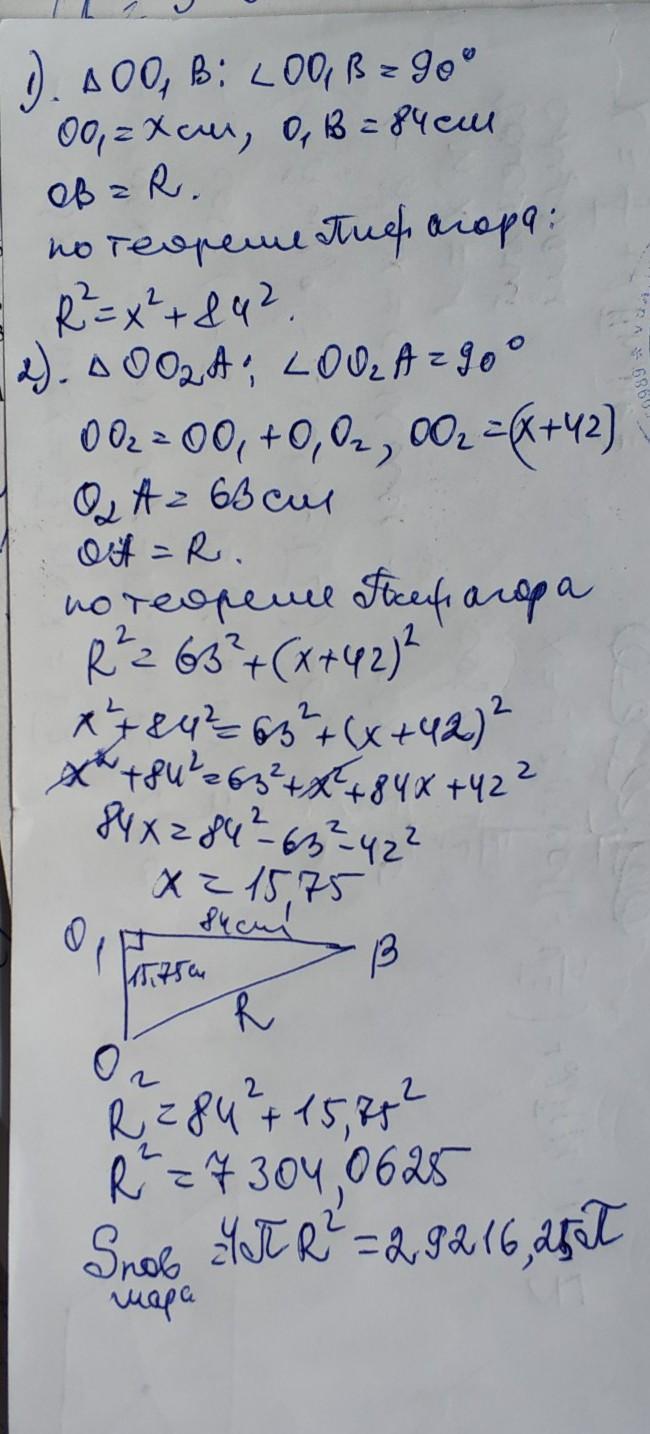 1). △OO₁B: ∠OO₁B = 90°
OO₁ = x см, O₁B = 84 см
OB = R.
по теореме Пифагора:
R² = x² + 84².
2). △OO₂A; ∠OO₂A = 90°
OO₂ = OO₁ + O₁O₂, OO₂ = (x+42)
O₂A = 63 см
OA = R.
по теореме Пифагора
R² = 63² + (x+42)²
x² + 84² = 63² + (x+42)²
x² + 84² = 63² + x² + 84x + 42²
84x = 84² - 63² - 42²
x = 15,75
84см
O₁ B
15,75см
R
O₂
R² = 84² + 15,75²
R² = 7304,0625
Sпов = 4πR² = 29216,25π
шара